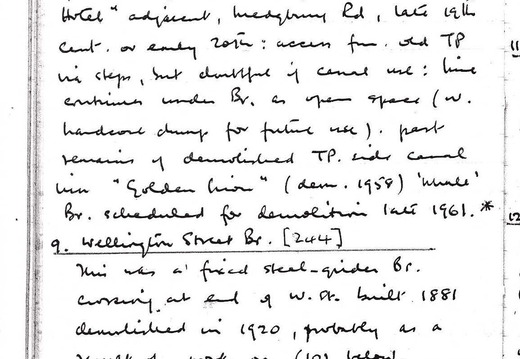 Hotel" adjacent, Wedgbury Rd, late 19th
Cent. or early 20th: access fm. old TP
via steps, but doubtful if canal use: line
continues under Br. as open space (w.
hardcore dump for future use). past
remains of demolished TP. side canal
inn "Golden Lion" (dem. 1958) 'Whale'
Br. scheduled for demolition late 1961. *
9. Wellington Street Br. [244]
This was a fixed steel-girder Br.
crossing at end of W. St. built 1881
demolished in 1920, probably as a
(10) below
11
12